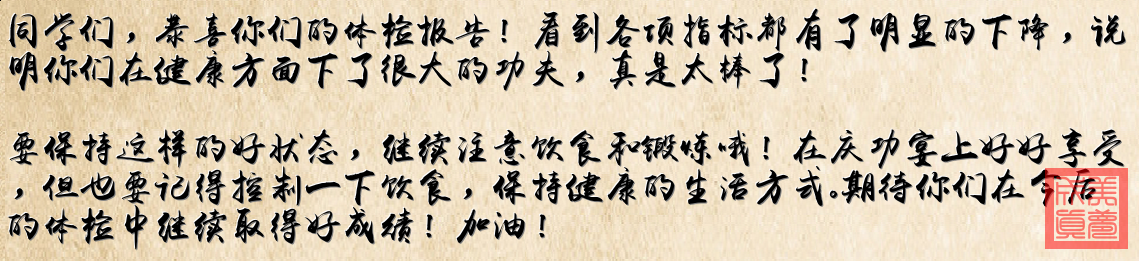 同学们，恭喜你们的体检报告！看到各项指标都有了明显的下降，说
明你们在健康方面下了很大的功夫，真是太棒了！
要保持这样的好状态，继续注意饮食和锻炼哦！在庆功宴上好好享受
，但也要记得控制一下饮食，保持健康的生活方式。期待你们在今后
的体检中继续取得好成绩！加油！